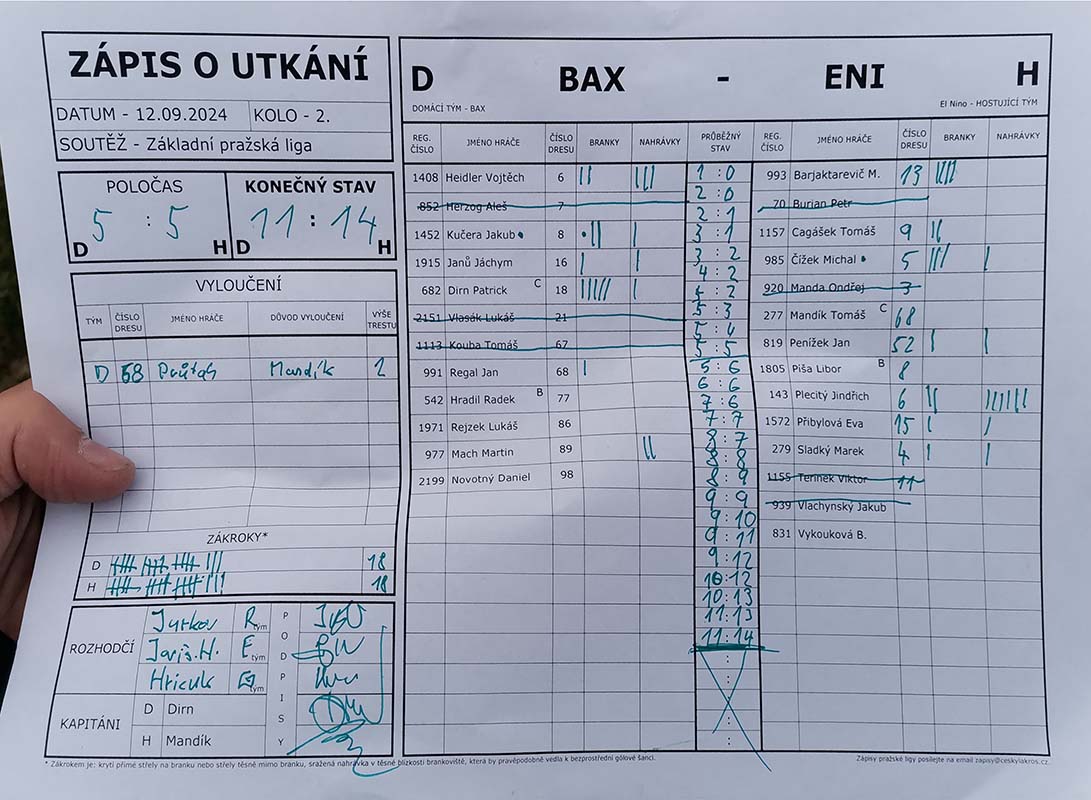 ZÁPIS O UTKÁNÍ
DATUM - 12.09.2024 KOLO - 2.
SOUTĚŽ - Základní pražská liga
POLOČAS KONEČNÝ STAV
5 : 5 11 : 14
D H D H
VYLOUČENÍ
TÝM ČÍSLO DRESU JMÉNO HRÁČE DŮVOD VYLOUČENÍ VÝŠE TRESTU
D 68 Mandík
ZÁKROKY*
D 18
H 18
ROZHODČÍ
Jurkov R tým
E tým
tým
KAPITÁNI
D Dirn
H Mandík
PODPISY
D BAX - ENI H
DOMÁCÍ TÝM - BAX El Nino - HOSTUJÍCÍ TÝM
REG. ČÍSLO JMÉNO HRÁČE ČÍSLO DRESU BRANKY NAHRÁVKY PRŮBĚŽNÝ STAV REG. ČÍSLO JMÉNO HRÁČE ČÍSLO DRESU BRANKY NAHRÁVKY
1408 Heidler Vojtěch 6 || |||
852 Herzog Aleš 7
1452 Kučera Jakub 8 || |
1915 Janů Jáchym 16 | |
682 Dirn Patrick C 18 ||||| |
2151 Vlasák Lukáš 21
1113 Kouba Tomáš 67
991 Regal Jan 68 |
542 Hradil Radek B 77
1971 Rejzek Lukáš 86
977 Mach Martin 89 ||
2199 Novotný Daniel 98
1:0
2:0
2:1
3:1
3:2
4:2
5:2
5:3
5:4
5:5
5:6
6:6
7:6
7:7
8:7
8:8
8:9
9:9
9:10
9:11
9:12
10:12
10:13
11:13
11:14
993 Barjaktarevič M. 13 ||||
70 Burian Petr
1157 Cagášek Tomáš 9 ||
985 Čížek Michal 5 ||| |
920 Manda Ondřej 3
277 Mandík Tomáš C 68
819 Penížek Jan 52 | |
1805 Piša Libor B 8
143 Plecitý Jindřich 6 || ||||||
1572 Přibylová Eva 15 | |
279 Sladký Marek 4 | |
1155 Terinek Viktor 11
939 Vlachynský Jakub
831 Vykouková B.
* Zákrokem je: krytí přímé střely na branku nebo střely těsně mimo branku, sražená nahrávka v těsné blízkosti brankoviště, která by pravěpodobně vedla k bezprostřední gólové šanci.
Zápisy pražské ligy posílejte na email zapisy@ceskylakros.cz.